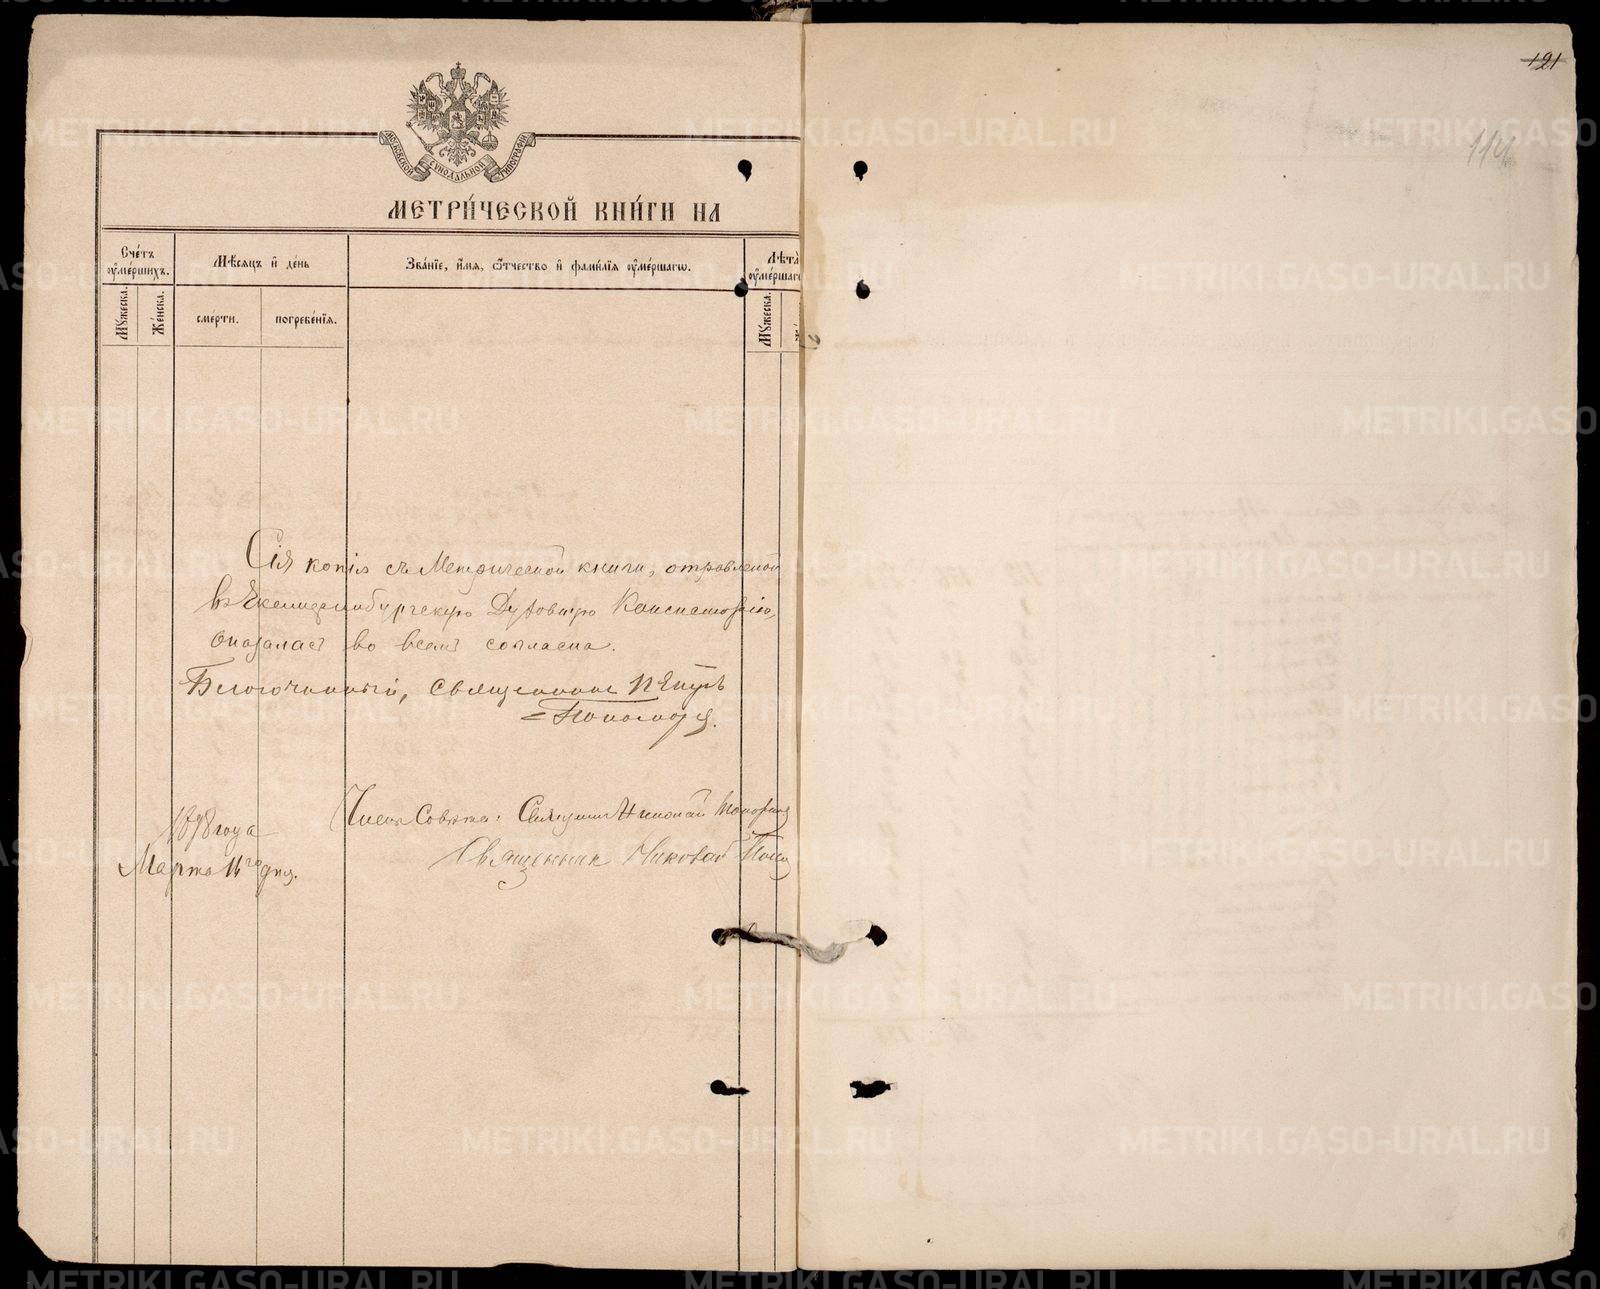 121
114
МОСКОВСКОЙ СѴНОДАЛЬНОЙ ТИПОГРАФІИ
МЕТРИ́ЧЕСКОЙ КНИ́ГИ НА
Сче́тъ ᲂумершихъ.
Мѣ́сѧцъ и҆ де́нь
Зва́нїе, и҆́мѧ, ѻ҆́тчество и҆ фами́лїѧ ᲂу҆ме́ршагѡ.
Лѣта̀ ᲂу҆ме́ршаг
Мꙋ́жеска.
Же́нска.
сме́рти.
погребе́нїѧ.
Мꙋ́жеска.
Сія копія съ Метрической книги, отправленой
въ Екатеринбургскую Духовную Консисторію,
оказалась во всемъ согласна.
Благочинный, Священникъ Петръ
Пономаревъ.
1898 года
Марта 11го дня.
Члены Совѣта: Священникъ Николай Топорковъ
Священникъ Николай Попо
METRIKI.GASO-URAL.RU